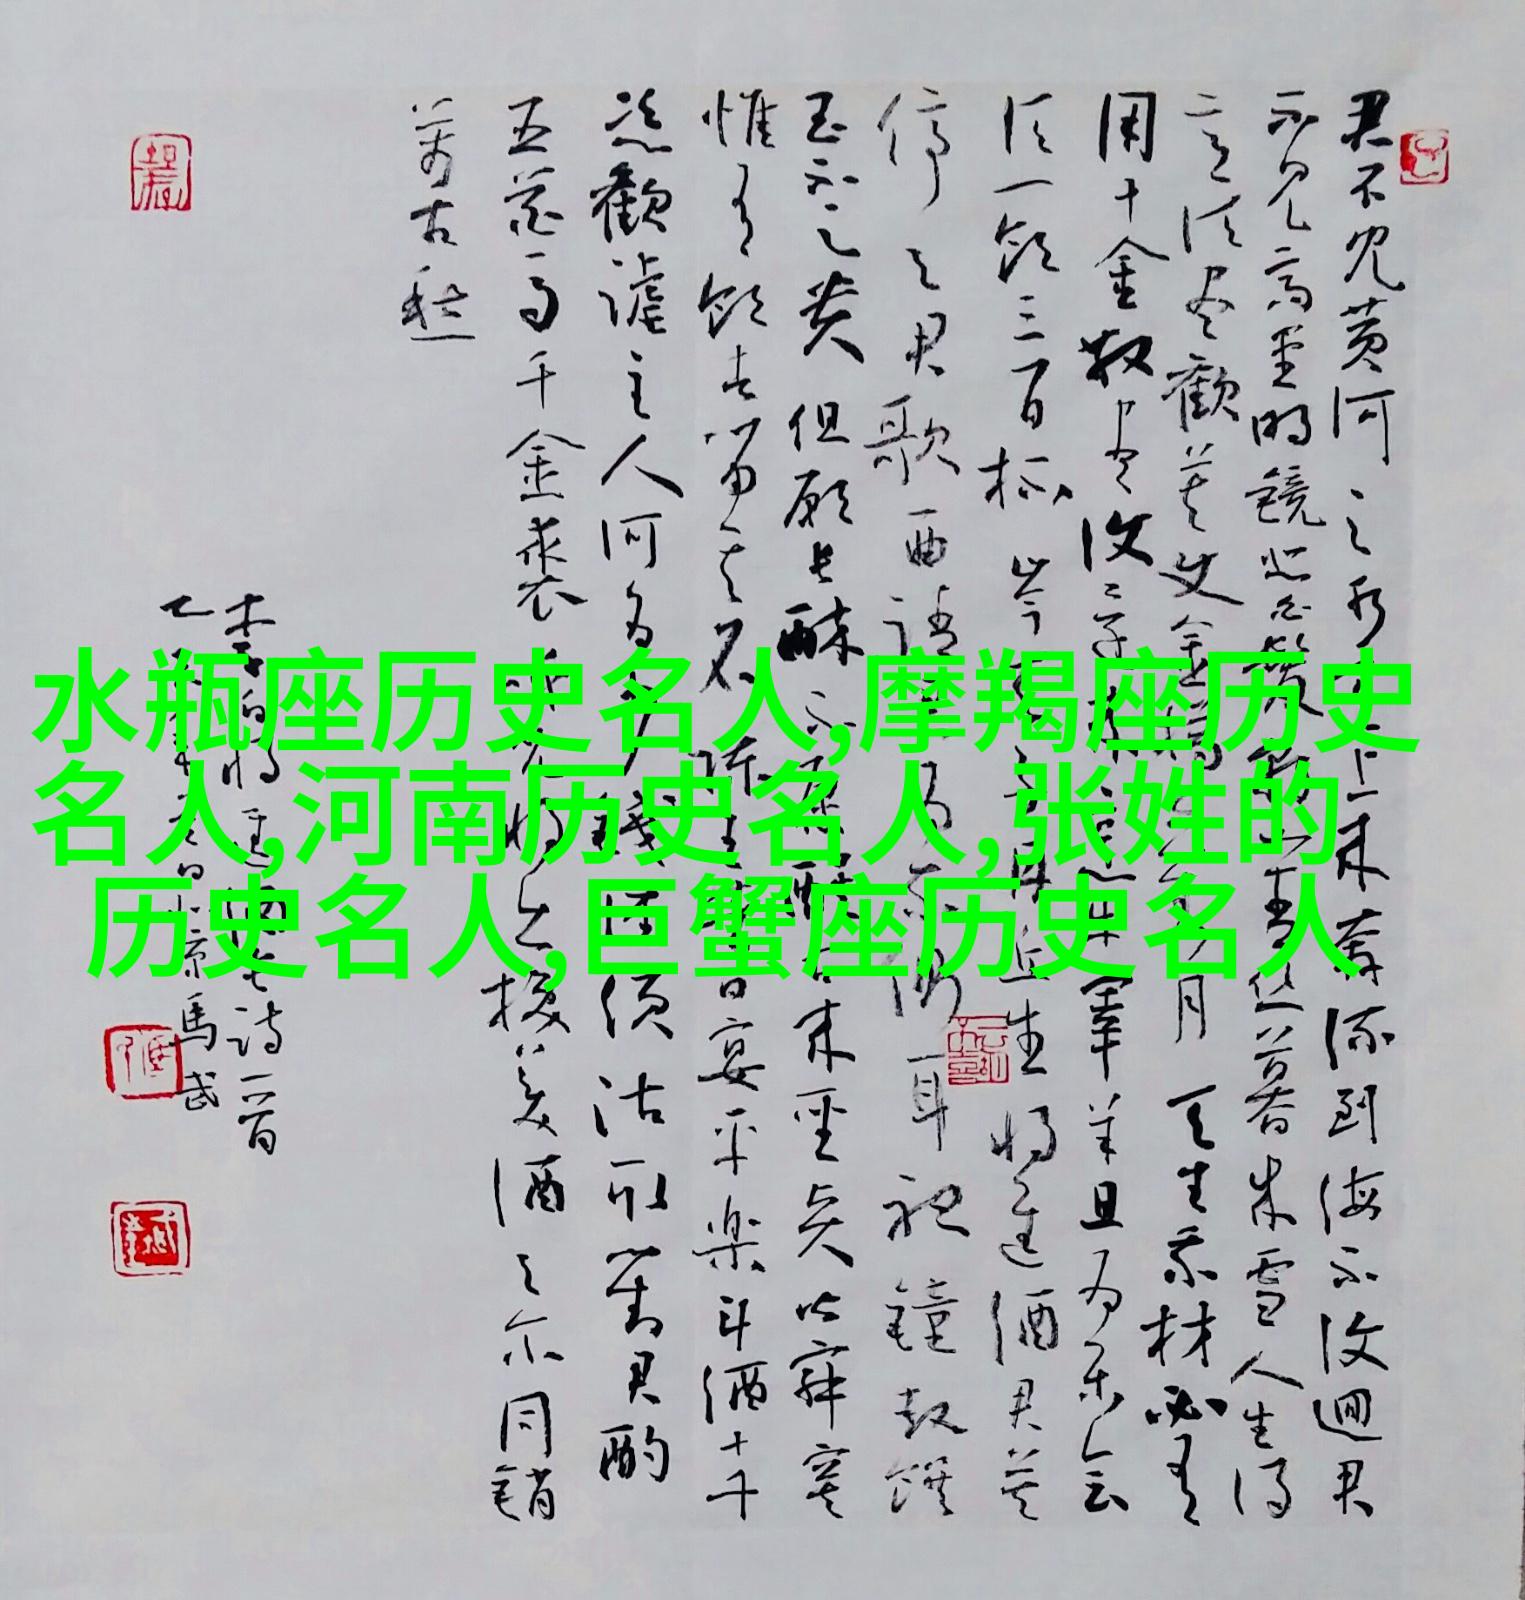 水瓶座历史名人,摩羯座历史
名人,河南历史名人,张姓的
历史名人,巨蟹座历史名人
君不见黄河之水天上来奔流到海不复迴君
不见高堂明镜悲白髮朝如青丝暮成雪人生得
意须尽歡莫使金樽空对月天生我材必有
用千金散尽復还来烹羊宰羊且为乐会
须一饮三百杯岑夫子丹丘生将進酒君莫
停与君歌一曲请君为我侧耳聽鐘鼓饌
玉不足贵但願长醉不願醒古来圣贤皆寂寞
惟有饮者留其名陈王昔时宴平樂斗酒十千
恣歡谑主人何为言少钱径须沽取对君酌
五花马千金裘呼儿将出换美酒与尔同銷
万古愁
李白将進酒诗一首